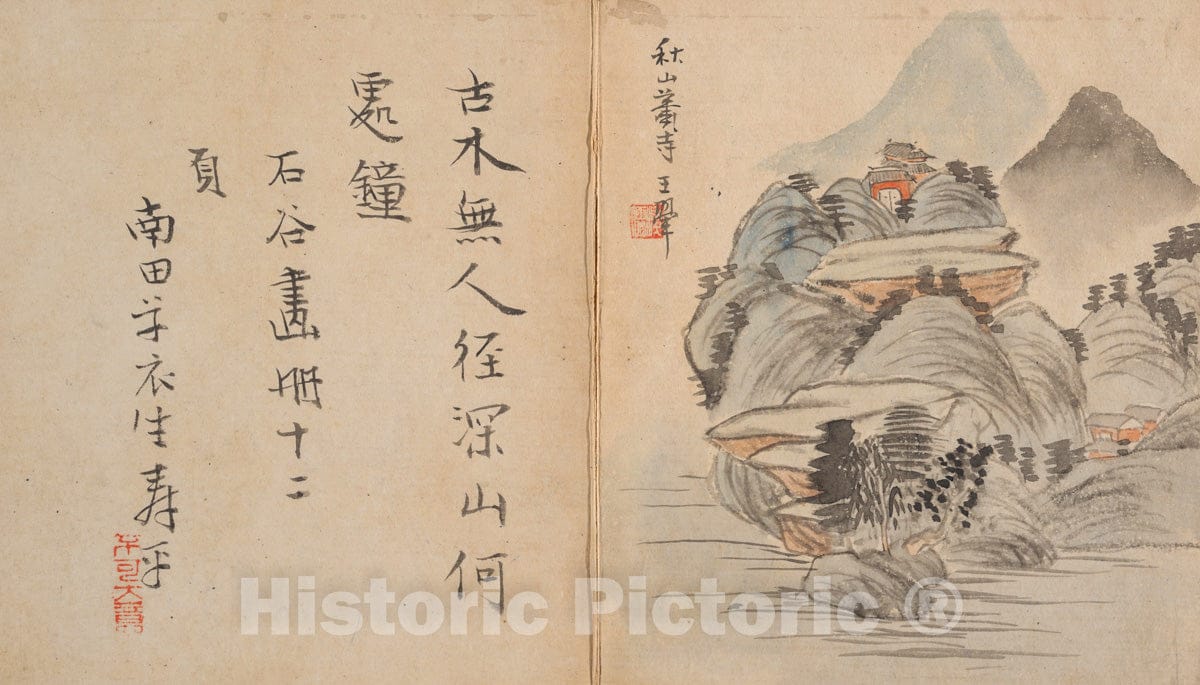 秋山蕭寺 王翬
古木無人徑深山何
處鐘
石谷畫冊十二
頁
南田草衣生壽平
Historic Pictoric ®